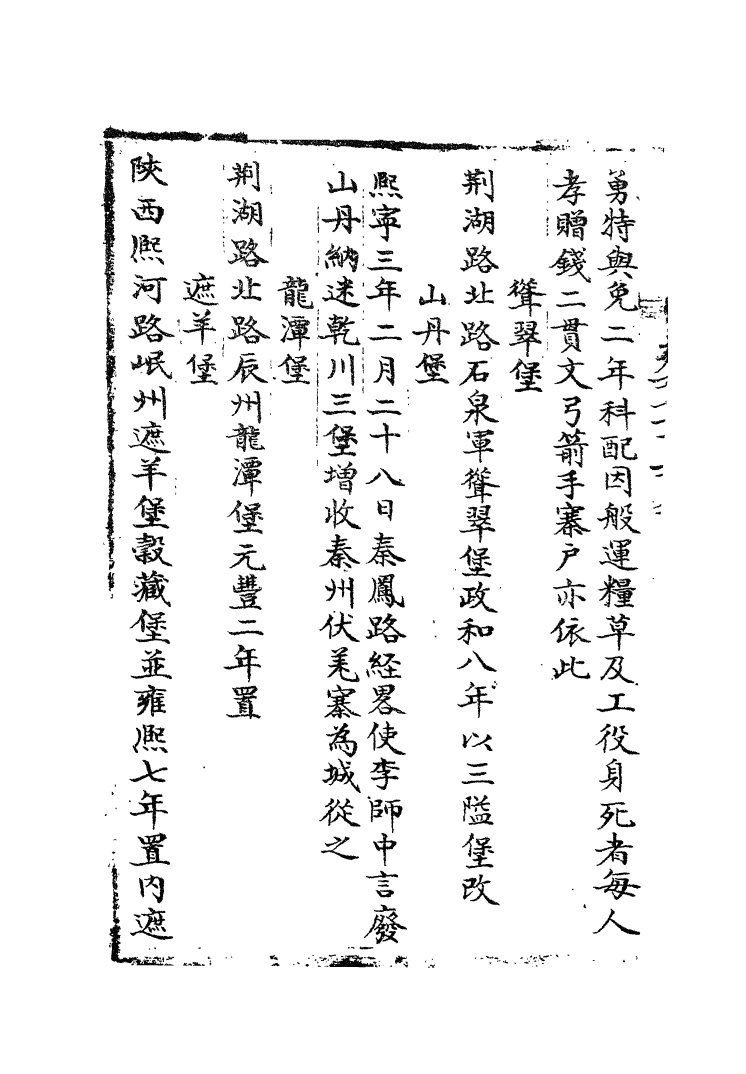 勇特與免二年科配因般運糧草及工役身死者每人
孝贈錢二貫文弓箭手寨戶亦依此
聳翠堡
荆湖路北路石泉軍聳翠堡政和八年以三隘堡改
山丹堡
熙寧三年二月二十八日秦鳳路経畧使李師中言廢
山丹納迷乾川三堡增收秦州伏羌寨為城從之
龍潭堡
荆湖路北路辰州龍潭堡元豐二年置
遮羊堡
陝西熙河路岷州遮羊堡穀藏堡並雍熙七年置内遮